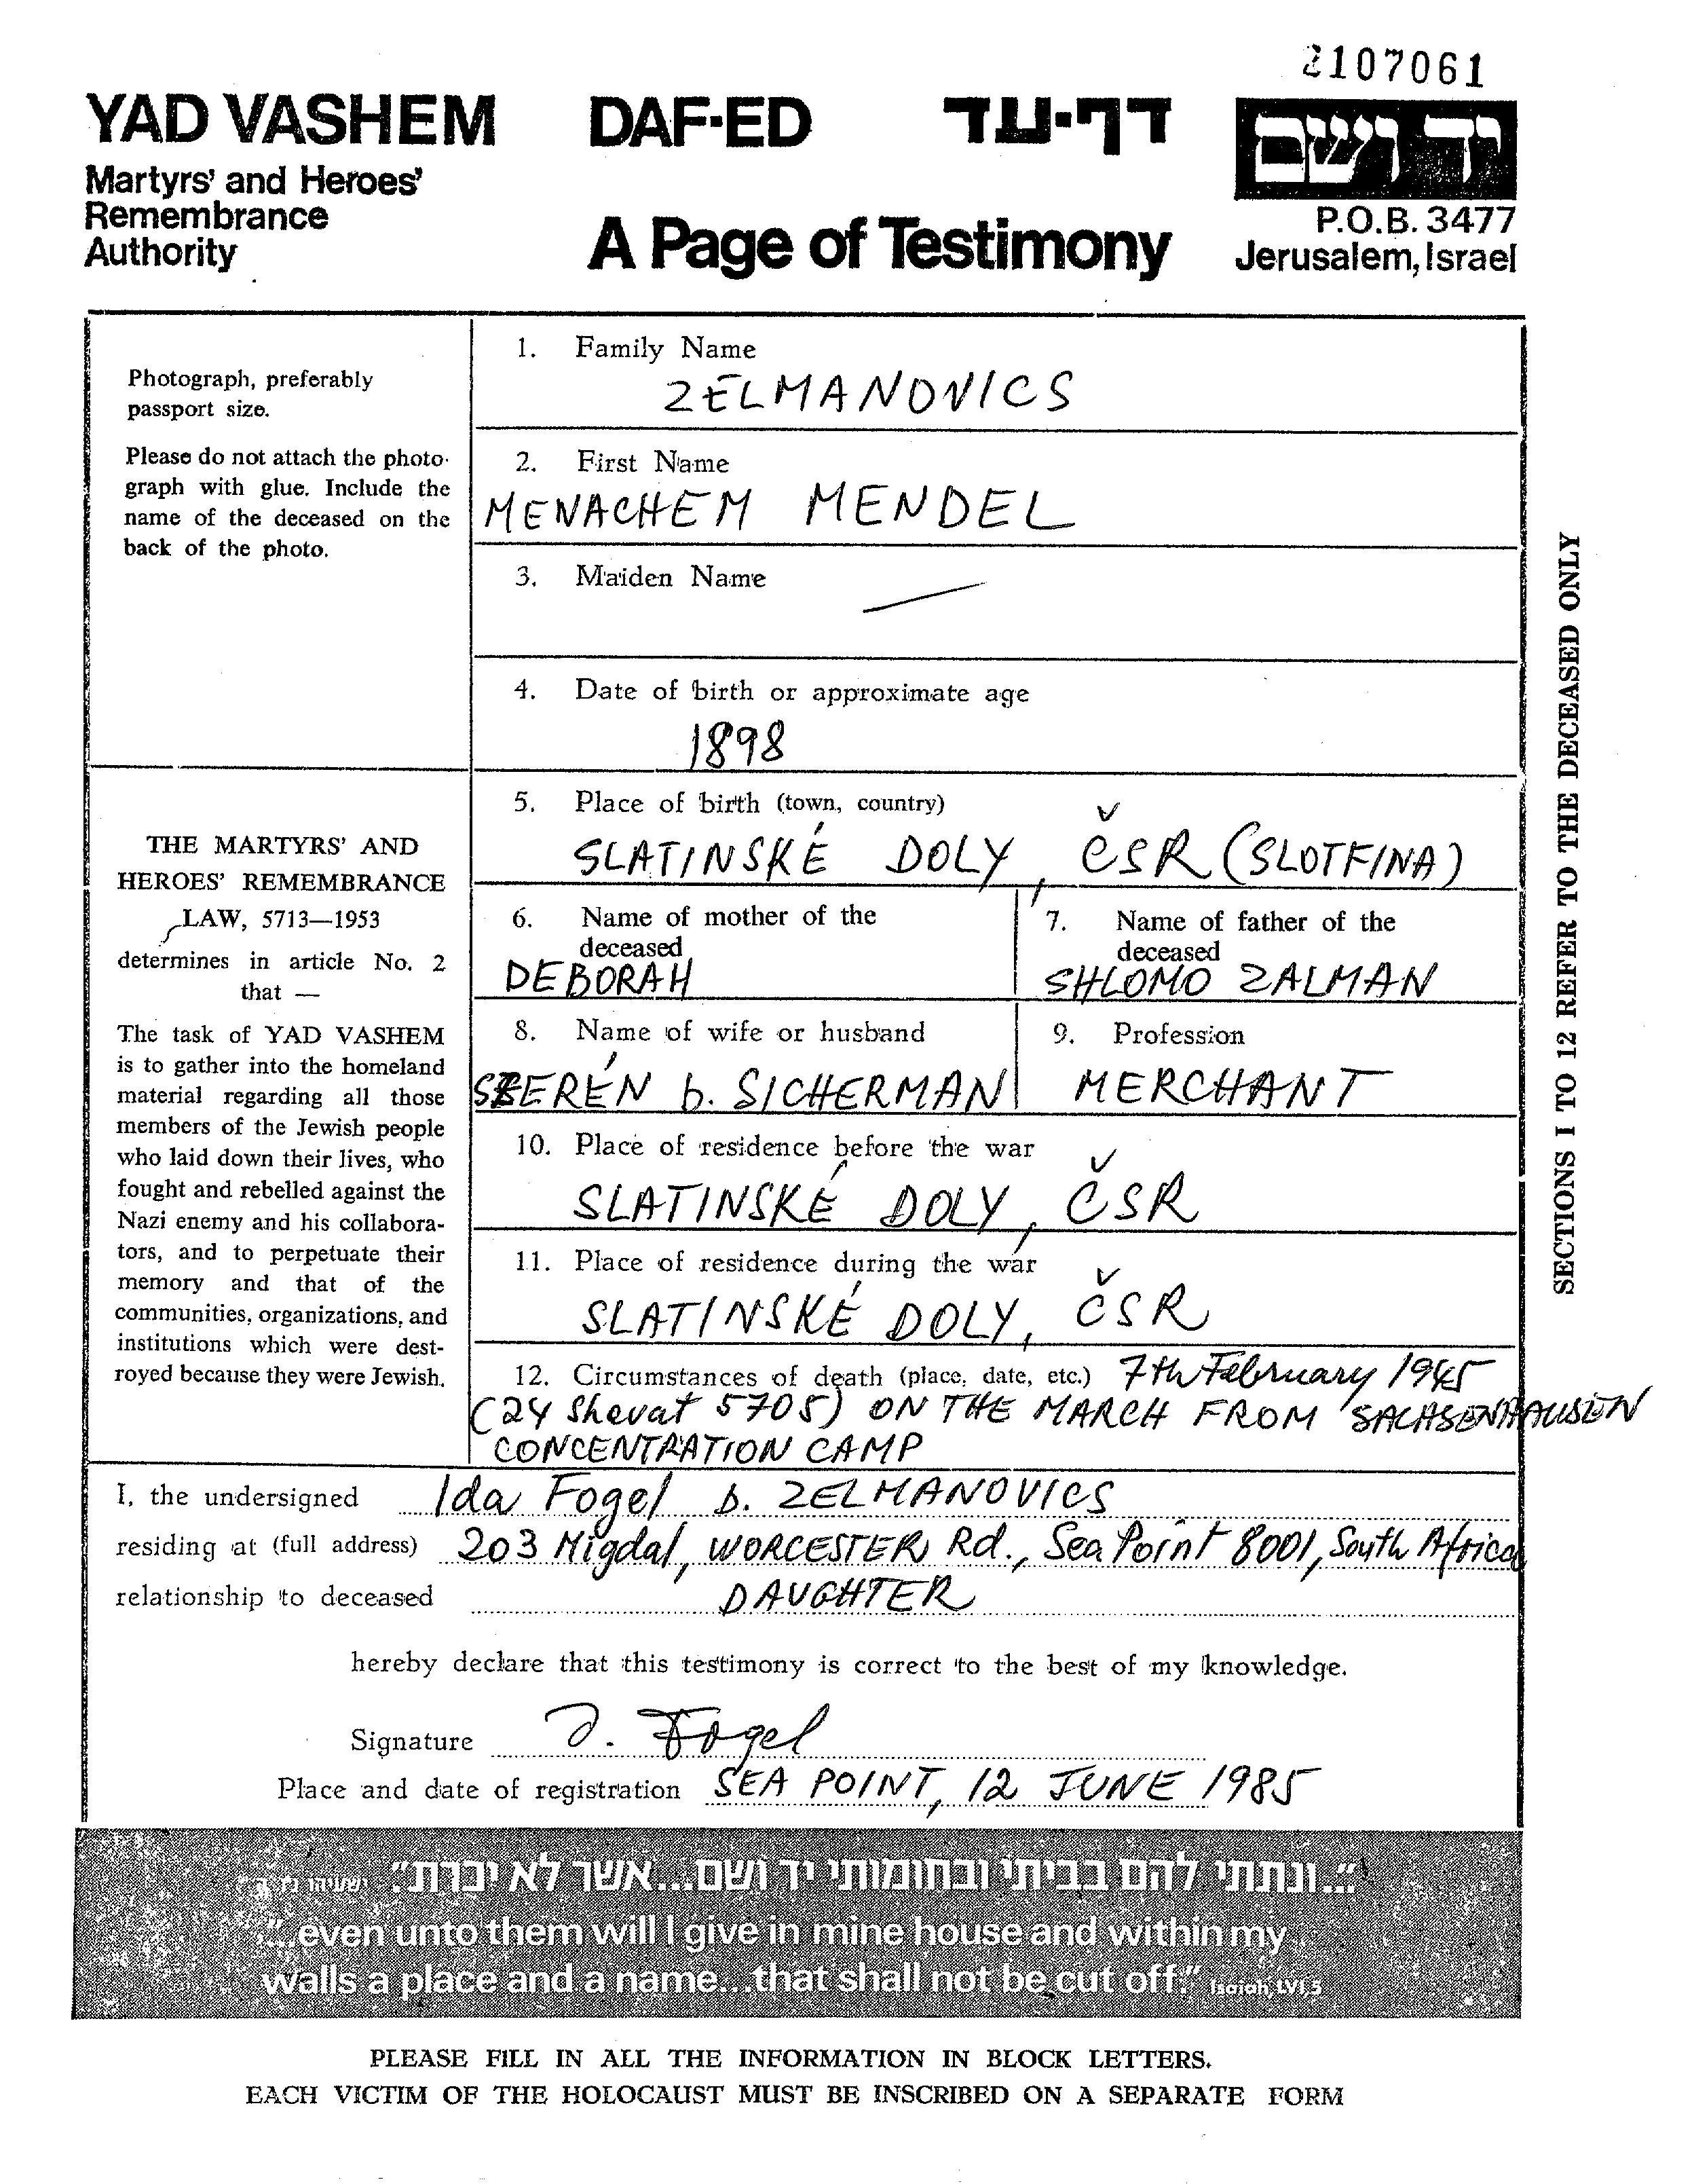 2107061
YAD VASHEM DAF-ED דף-עד יד ושם
Martyrs' and Heroes'
Remembrance
Authority
A Page of Testimony
P.O.B. 3477
Jerusalem, Israel
Photograph, preferably
passport size.
Please do not attach the photo-
graph with glue. Include the
name of the deceased on the
back of the photo.
THE MARTYRS' AND
HEROES' REMEMBRANCE
LAW, 5713—1953
determines in article No. 2
that —
The task of YAD VASHEM
is to gather into the homeland
material regarding all those
members of the Jewish people
who laid down their lives, who
fought and rebelled against the
Nazi enemy and his collabora-
tors, and to perpetuate their
memory and that of the
communities, organizations, and
institutions which were dest-
royed because they were Jewish.
1. Family Name
ZELMANOVICS
2. First Name
MENACHEM MENDEL
3. Maiden Name
—
4. Date of birth or approximate age
1898
5. Place of birth (town, country)
SLATINSKÉ DOLY, ČSR (SLOTFINA)
6. Name of mother of the
deceased
DEBORAH
7. Name of father of the
deceased
SHLOMO ZALMAN
8. Name of wife or husband
SZERÉN b. SICHERMAN
9. Profession
MERCHANT
10. Place of residence before the war
SLATINSKÉ DOLY, ČSR
11. Place of residence during the war
SLATINSKÉ DOLY, ČSR
12. Circumstances of death (place, date, etc.) 7th February 1945
(24 Shevat 5705) ON THE MARCH FROM SACHSENHAUSEN
CONCENTRATION CAMP
SECTIONS 1 TO 12 REFER TO THE DECEASED ONLY
I, the undersigned Ida Fogel b. ZELMANOVICS
residing at (full address) 203 Migdal, WORCESTER Rd., Sea Point 8001, South Africa
relationship to deceased DAUGHTER
hereby declare that this testimony is correct to the best of my knowledge.
Signature I. Fogel
Place and date of registration SEA POINT, 12 JUNE 1985
"...ונתתי להם בביתי ובחומותי יד ושם...אשר לא יכרת." ישעיהו נ"ו, ה'
"...even unto them will I give in mine house and within my
walls a place and a name...that shall not be cut off." Isaiah, LVI, 5
PLEASE FILL IN ALL THE INFORMATION IN BLOCK LETTERS.
EACH VICTIM OF THE HOLOCAUST MUST BE INSCRIBED ON A SEPARATE FORM